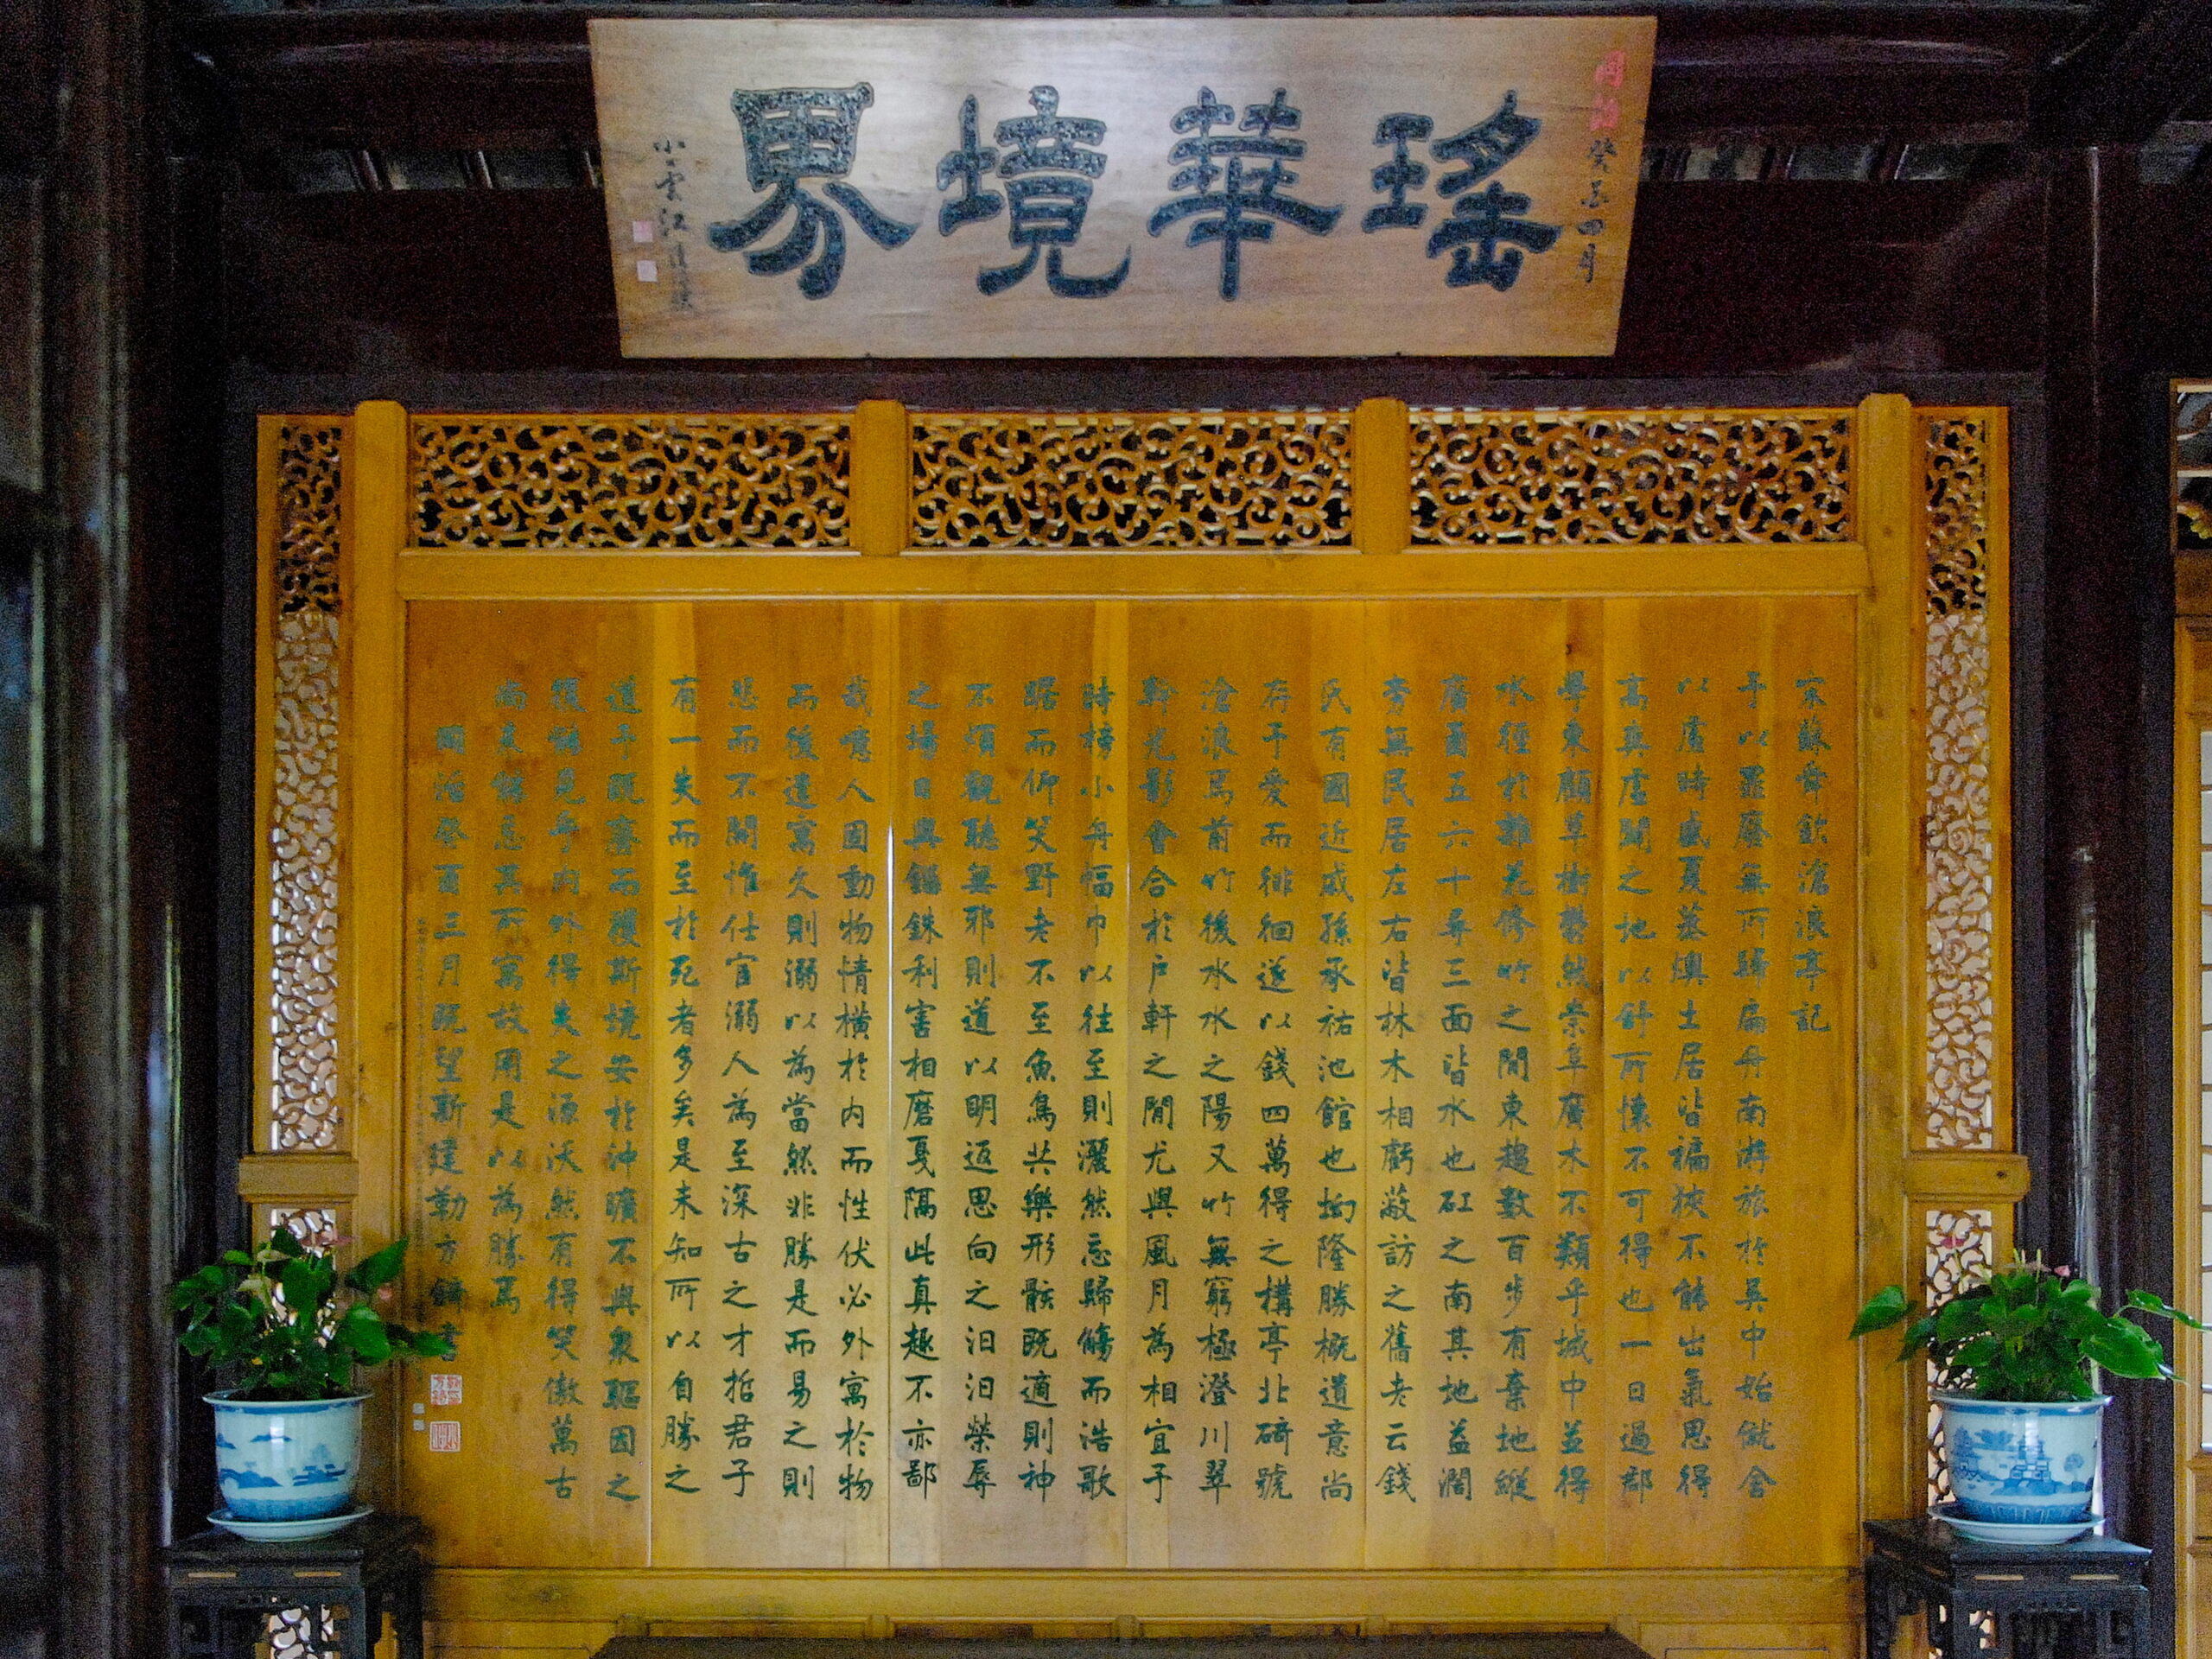 同治癸亥四月
瑤華境界
小雲江
宋蘇舜欽滄浪亭記
予以罪廢無所歸扁舟南游旅於吳中始僦舍
以處時盛夏蒸燠土居皆褊狹不能出氣思得
高爽虛闢之地以舒所懷不可得也一日過郡
學東顧草樹鬱然崇阜廣水不類乎城中並得
水徑於雜花修竹之間東趨數百步有棄地縱
廣函五六十尋三面皆水也矼之南其地益濶
旁無民居左右皆林木相虧蔽訪之舊老云錢
氏有國近戚孫承祐池館也坳隆勝概遺意尚
存予愛而徘徊遂以錢四萬得之構亭北碕號
滄浪焉前竹後水水之陽又竹無窮極澄川翠
幹光影會合於戶軒之間尤與風月為相宜予
時榜小舟幅巾以往至則灑然忘歸觴而浩歌
踞而仰笑野老不至魚鳥共樂形骸既適則神
不煩觀聽無邪則道以明返思向之汩汩榮辱
之場日與錙銖利害相磨戛隔此真趣不亦鄙
哉噫人固動物情橫於内而性伏必外寓於物
而後遣寓久則溺以為當然非勝是而易之則
悲而不開惟仕宦溺人為至深古之才哲君子
有一失而至於死者多矣是未知所以自勝之
道予既廢而獲斯境安於沖曠不與衆驅因之
復能見乎内外得失之源沃然有得笑傲萬古
尚未能忘其所寓故用是以為勝焉
同治癸酉三月既望新建勒方錡書